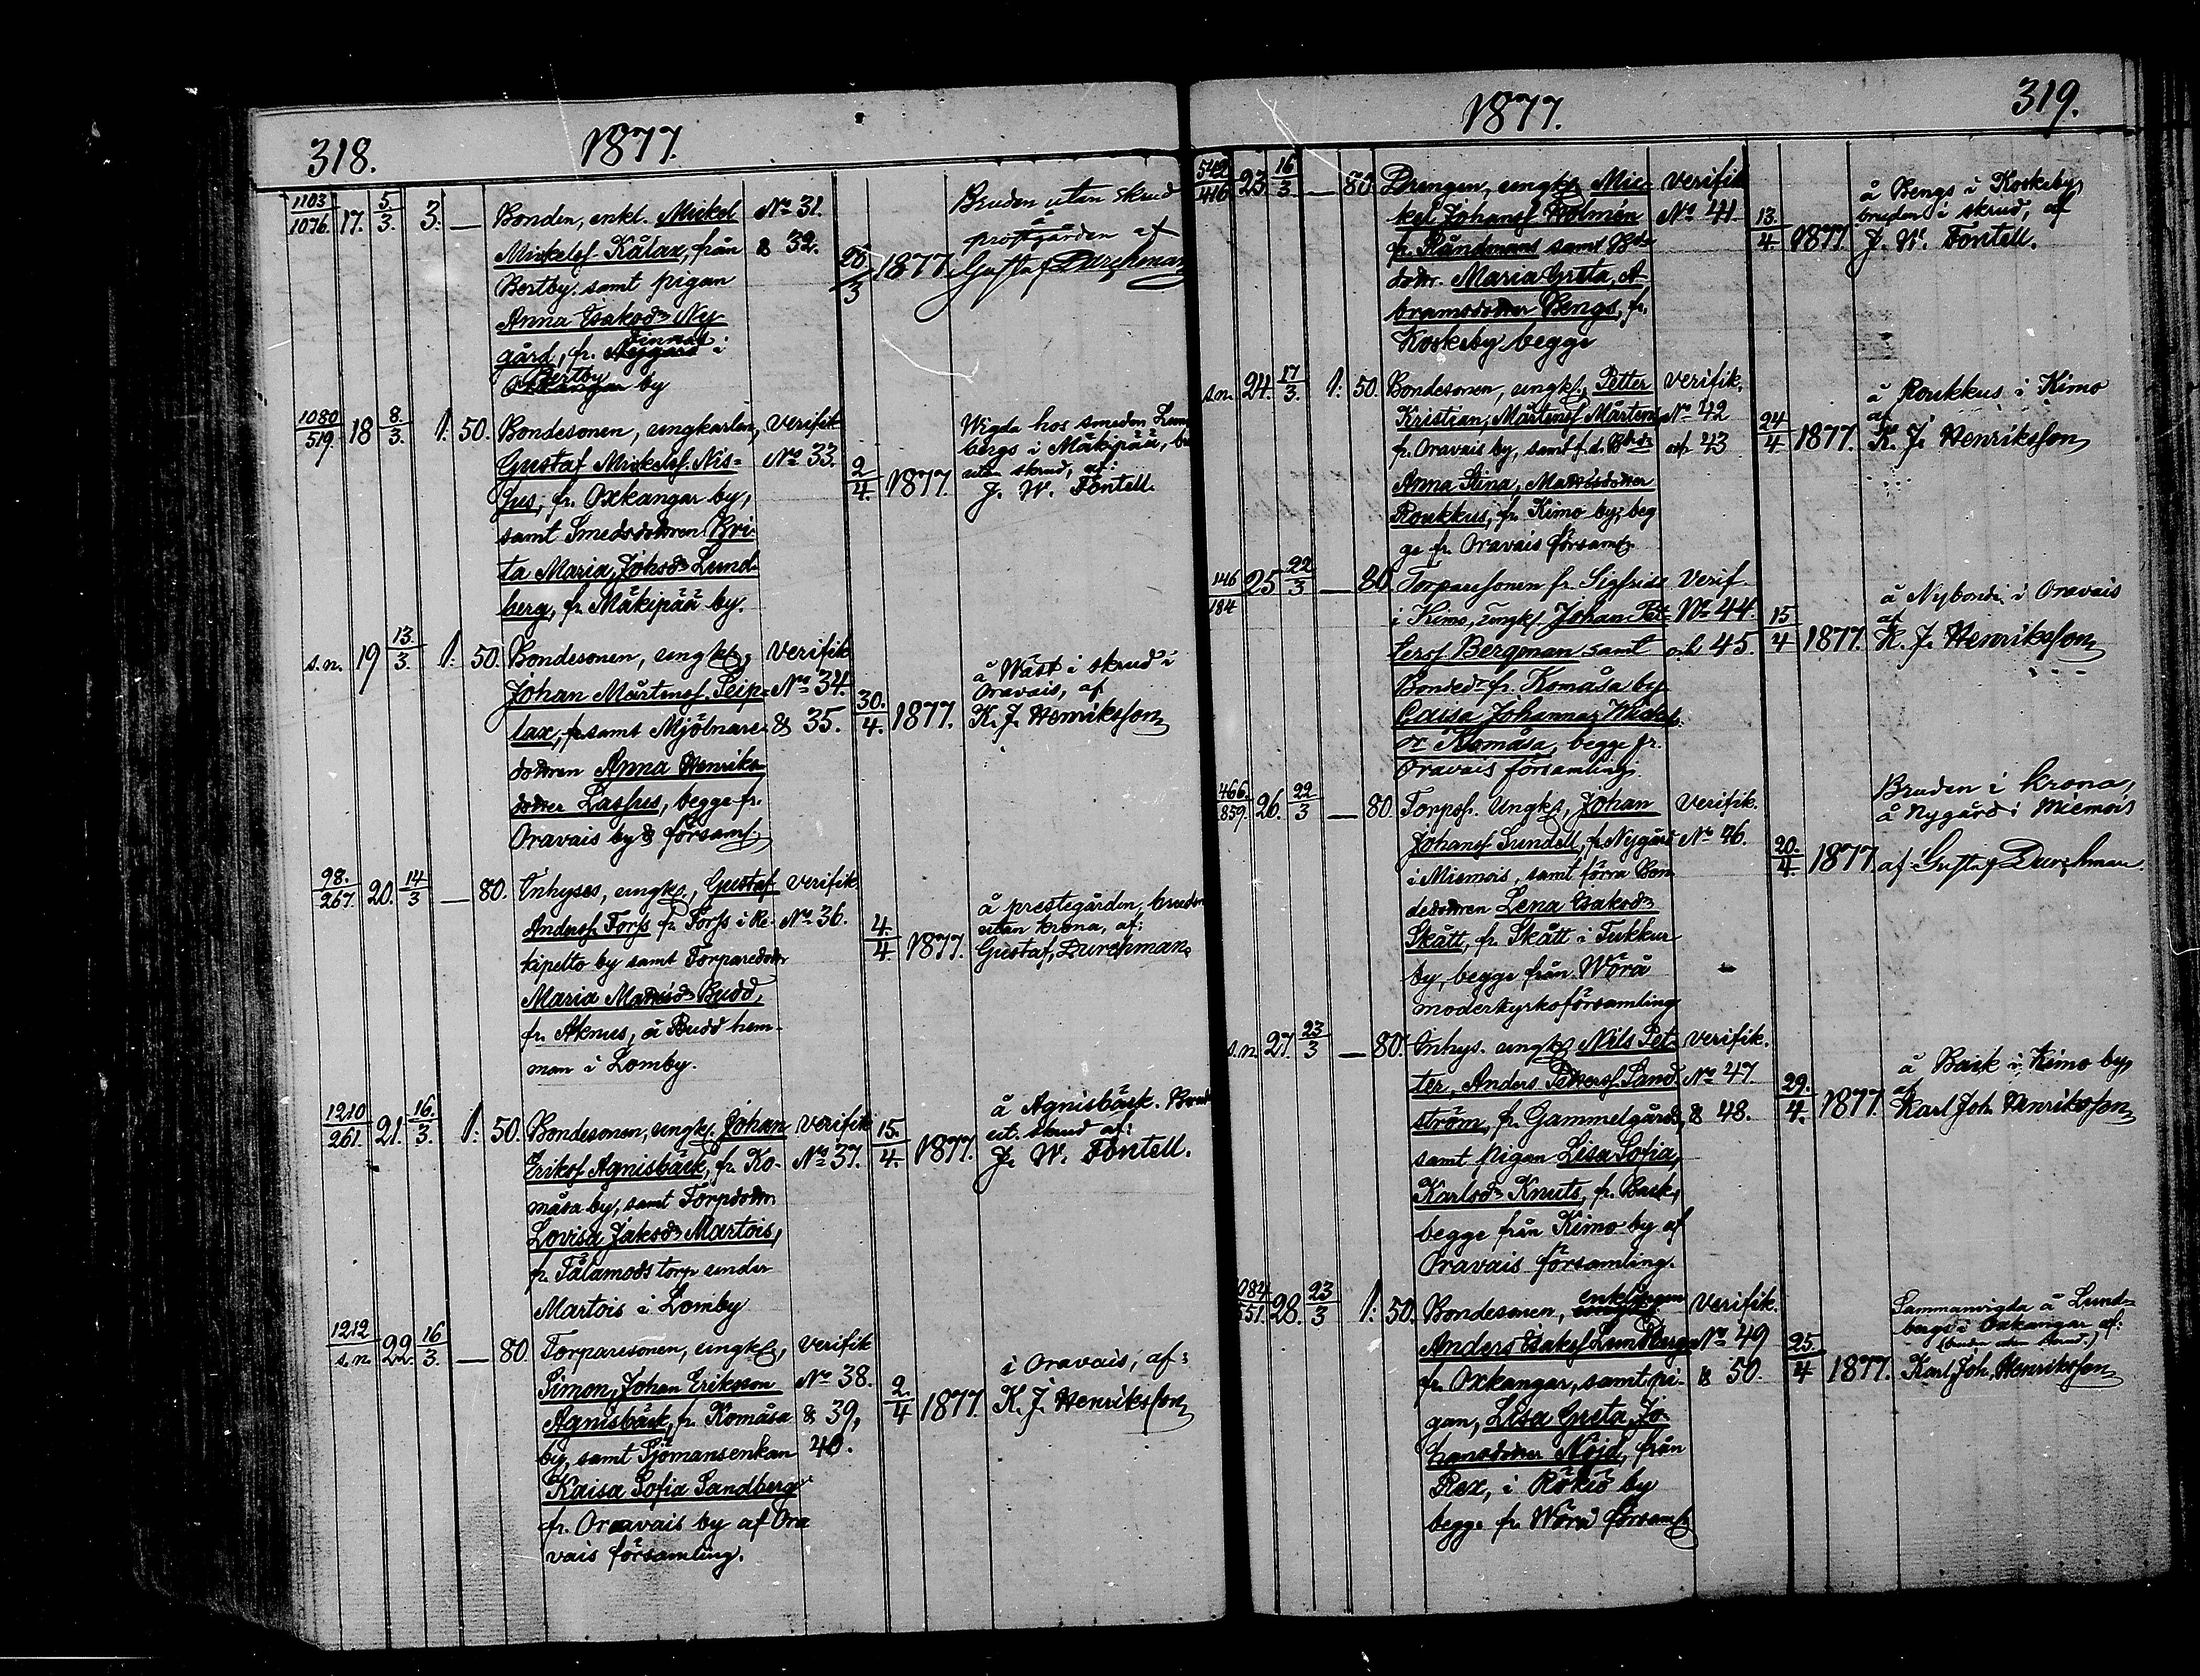 318. 1877.
1103/1076. 17. 5/3. 3. — Bonden, enkl. Mickel No 31.
Mickelsf. Kålax, från & 32.
Bertby samt pigan
Anna Isaksdr Ny-
gård, fr. Finnas i
Bertby by
26/3 1877.
Bruden utan skrud
å
prostgården af
Gustaf Durchman
1080/519. 18 8/3. 1. 50. Bondesonen, ungkarlen, Verifik
Gustaf Mickelsf. Nis- No 33.
sus, fr. Oxkangar by,
samt Smedsdottren Bri-
ta Maria, Johsdr Lund-
berg, fr. Mäkipää by.
2/4. 1877.
Wigda hos smeden Lund
bergs i Mäkipää, br
utan skrud, af:
J. W. Fontell.
s.n. 19 13./3. 1. 50. Bondesonen, ungk., Verifik
Johan Mårtensf. Peip- No 34.
lax, fr samt Mjölnare- & 35.
dottren Anna Henriks-
dotter Lassus, begge fr.
Oravais by & församl.
30./4. 1877.
å Wäst i skrud i
Oravais, af
K. J. Henriksson
98./267. 20. 14/3 — 80. Inhyses, ungk., Gustaf Verifik.
Andersf. Forss fr. Forss i Re- No 36.
kipelto by samt Torparedottr
Maria Mattsdr Budd,
fr. Aknus, å Budd hem-
man i Lomby.
4./4 1877.
å prestegården, bruden
utan krona, af:
Gustaf, Durchman.
1210/261. 21. 16./3. 1. 50. Bondesonen, ungk. Johan Verifik
Eriksf Agnisbäck, fr. Ko- No 37.
måsa by, samt Torpdottr.
Lovisa Jaksdr Martois,
fr. Tålamods torp under
Martois i Lomby
15./4. 1877.
å Agnisbäck. Brud
ut. skrud af:
J. W. Fontell.
1212/s.n. 22. 16/3. — 80. Torparesonen, ungk., Verifik
Simon, Johan Eriksson No 38.
Agnisbäck, fr. Komåsa & 39,
by, samt Sjömansenkan 40.
Kaisa Sofia Sandberg
fr. Oravais by af Ora
vais församling.
2./4 1877.
i Oravais, af:
K. J. Henriksson
1877. 319.
542/416 23. 16/3. — 80. Drengen, ungk. Mic- Verifik
kel Johansf Holmén No 41.
fr. Råndmans samt Bd-
dottr. Maria Greta, A-
bramsdotter Bengs, fr.
Koskeby begge
13./4 1877.
å Bengs i Koskeby,
bruden i skrud, af
J. W. Fontell.
s.n. 24. 17/3. 1. 50. Bondesonen, ungk., Petter Verifik.
Kristian, Mårtensf Mårtens No 42
fr. Oravais by, samt f.d. Bddr och 43
Anna Stina, Mattsdotter
Roukkus, fr. Kimo by, beg
ge fr. Oravais församl.
24/4. 1877.
å Roukkus i Kimo
af
K. J. Henriksson
146/184 25 22/3 — 80. Torparesonen fr. Sigfrids Verif
i Kimo, ungk. Johan Pet- No 44.
tersf Bergman samt och 45.
Bondedr fr. Komåsa by
Caisa Johanna, Mickels
dr Komåsa, begge fr.
Oravais församling.
15/4 1877.
å Nybonde i Oravais
af
K. J. Henriksson
466./859. 26. 22/3 — 80. Torpsf. Ungk., Johan Verifik.
Johansf Sundell, fr. Nygård No 46.
i Miemois, samt förra Bon
dedottren Lena Isaksdr
Skått, fr. Skått i Tukkur
by, begge från Wörå
moderkyrkoförsamling
20./4. 1877.
Bruden i krona,
å Nygård i Miemois
af Gustaf Durchman.
s.n. 27. 23/3 — 80. Inhys. ungk. Nils Pet- Verifik.
ter, Anders Pettersf. Sand No 47
ström, fr. Gammelgård, & 48.
samt pigan Lisa Sofia,
Karlsdr Knuts, fr. Back,
begge från Kimo by af
Oravais församling.
29./4. 1877.
å Back i Kimo by
af
Karl Joh. Henriksson
1084/551. 28. 23/3 1. 50. Bondesonen, enklingen Verifik.
Anders Isaksf Lundberg No 49
fr. Oxkangar, samt pi- & 50.
gan, Lisa Greta, Jo-
hansdotter Nöjd, från
Rex, i Rökiö by
begge fr. Wörå församl.
25/4 1877.
Sammanvigda å Lund-
bergs i Oxkangar af:
(bruden utan skrud.)
Karl Joh. Henriksson